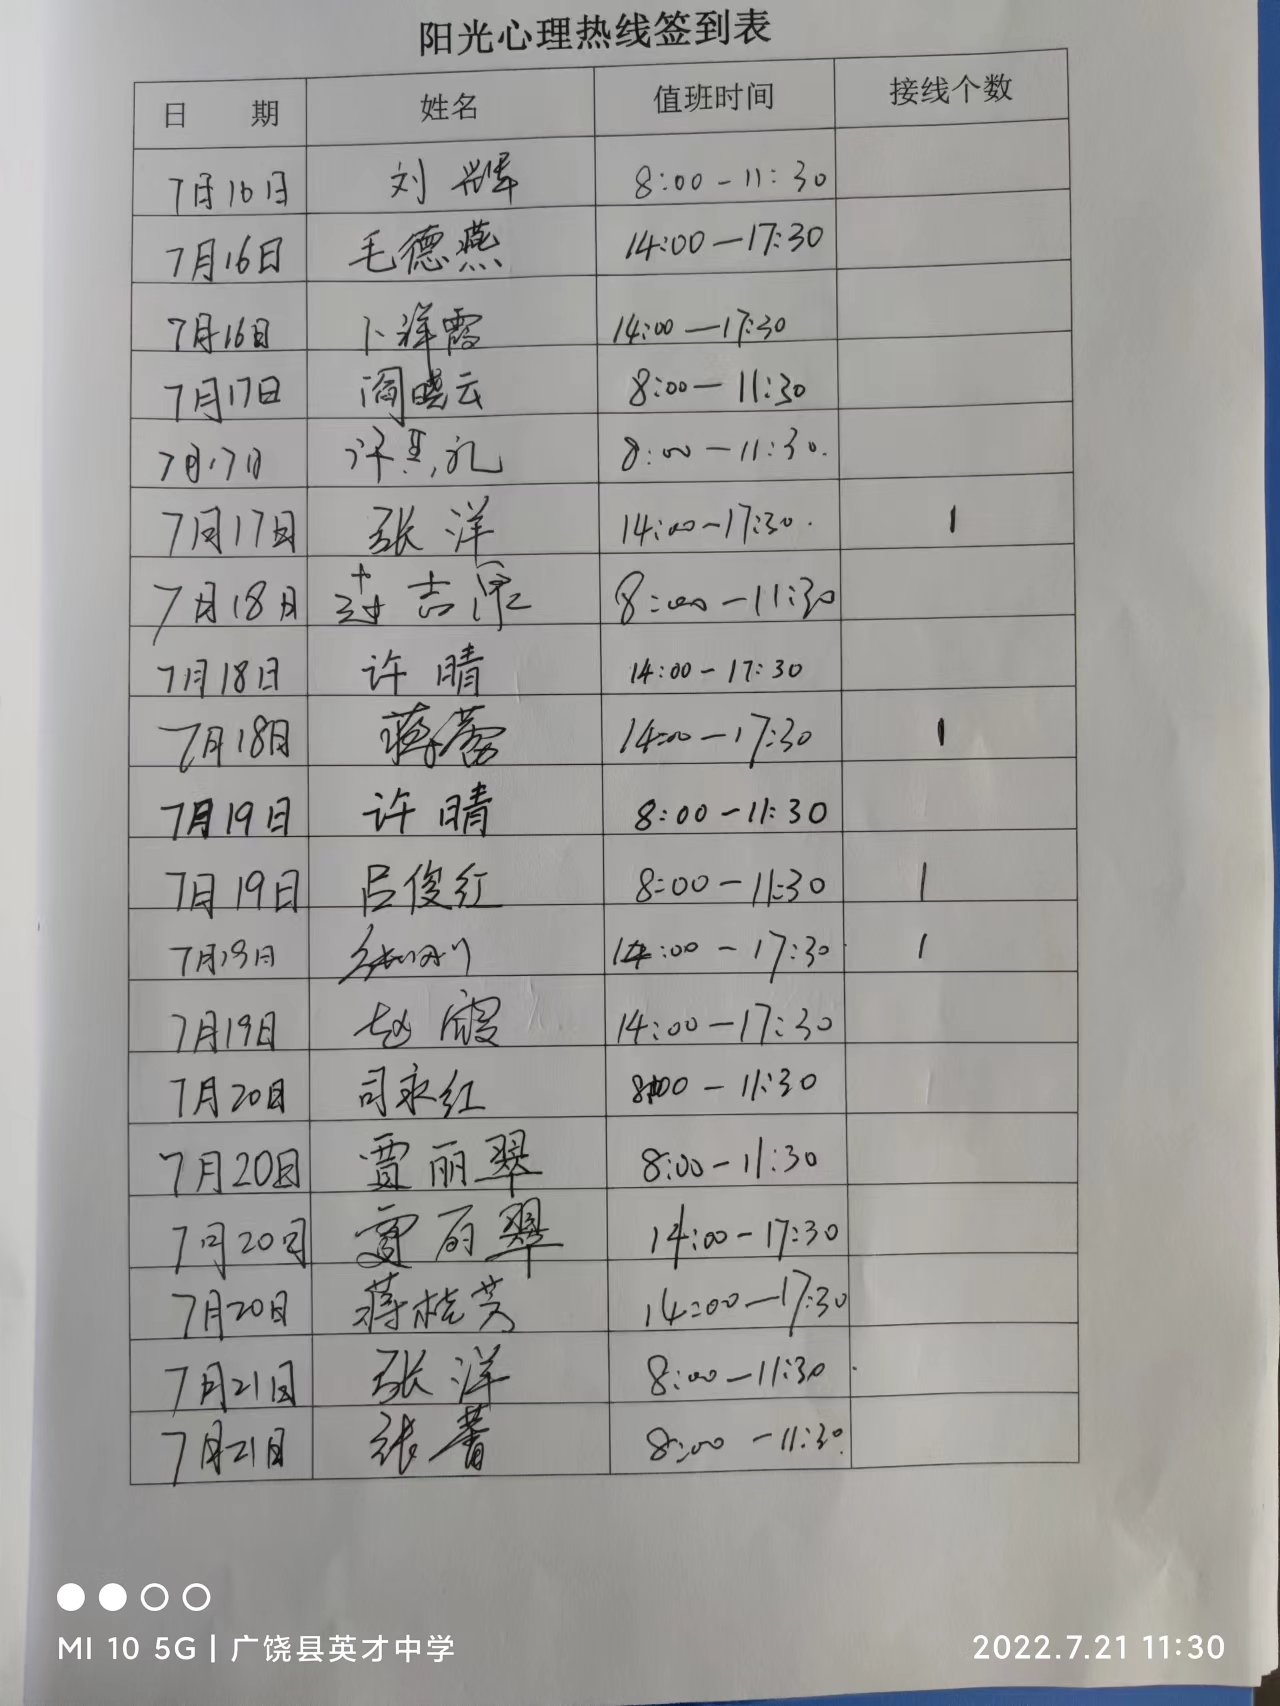 阳光心理热线签到表
日 期 姓名 值班时间 接线个数
7月16日 刘 8:00-11:30
7月16日 毛德燕 14:00-17:30
7月16日 卜祥霞 14:00-17:30
7月17日 阎晓云 8:00-11:30
7月17日 许 礼 8:00-11:30.
7月17日 张洋 14:00-17:30. 1
7月18日 吉 8:00-11:30
7月18日 许晴 14:00-17:30
7月18日 蒋蕾 14:00-17:30 1
7月19日 许晴 8:00-11:30
7月19日 吕俊红 8:00-11:30 1
7月19日 14:00-17:30 1
7月19日 赵霞 14:00-17:30
7月20日 司永红 8:00-11:30
7月20日 贾丽翠 8:00-11:30
7月20日 贾丽翠 14:00-17:30
7月20日 蒋桂芳 14:00-17:30
7月21日 张洋 8:00-11:30
7月21日 张菁 8:00-11:30.
MI 10 5G | 广饶县英才中学
2022.7.21 11:30